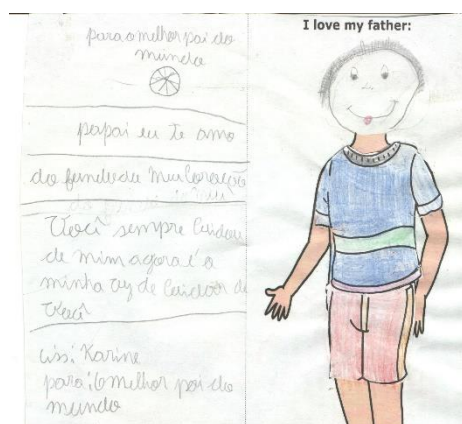 para o melhor pai do
mundo
papai eu te amo
do fundo do meu coração
Você sempre cuidou
de mim agora é a
minha vez de cuidar de
Você
Karine
para: o melhor pai do
mundo
I love my father: